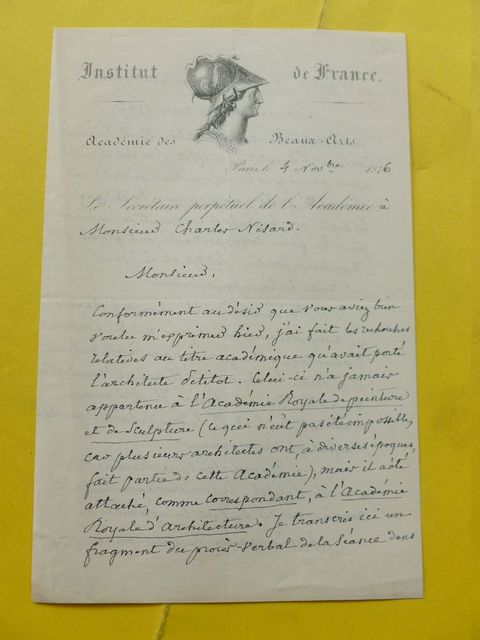 Institut de France.
Académie des Beaux-Arts.
Paris, le 4 Novbre 1876
Le Secrétaire perpétuel de l'Académie à
Monsieur Charles Nisard.
Monsieur,
Conformément au désir que vous aviez bien
voulu m'exprimer hier, j'ai fait les recherches
relatives au titre académique qu'avait porté
l'architecte Petitot. Celui-ci n'a jamais
appartenu à l'Académie Royale de peinture
et de Sculpture (ce qui n'eût pas été impossible,
car plusieurs architectes ont, à diverses époques,
fait partie de cette Académie), mais il a été
attaché, comme correspondant, à l'Académie
Royale d'Architecture. Je transcris ici un
fragment du procès-verbal de la Séance dans